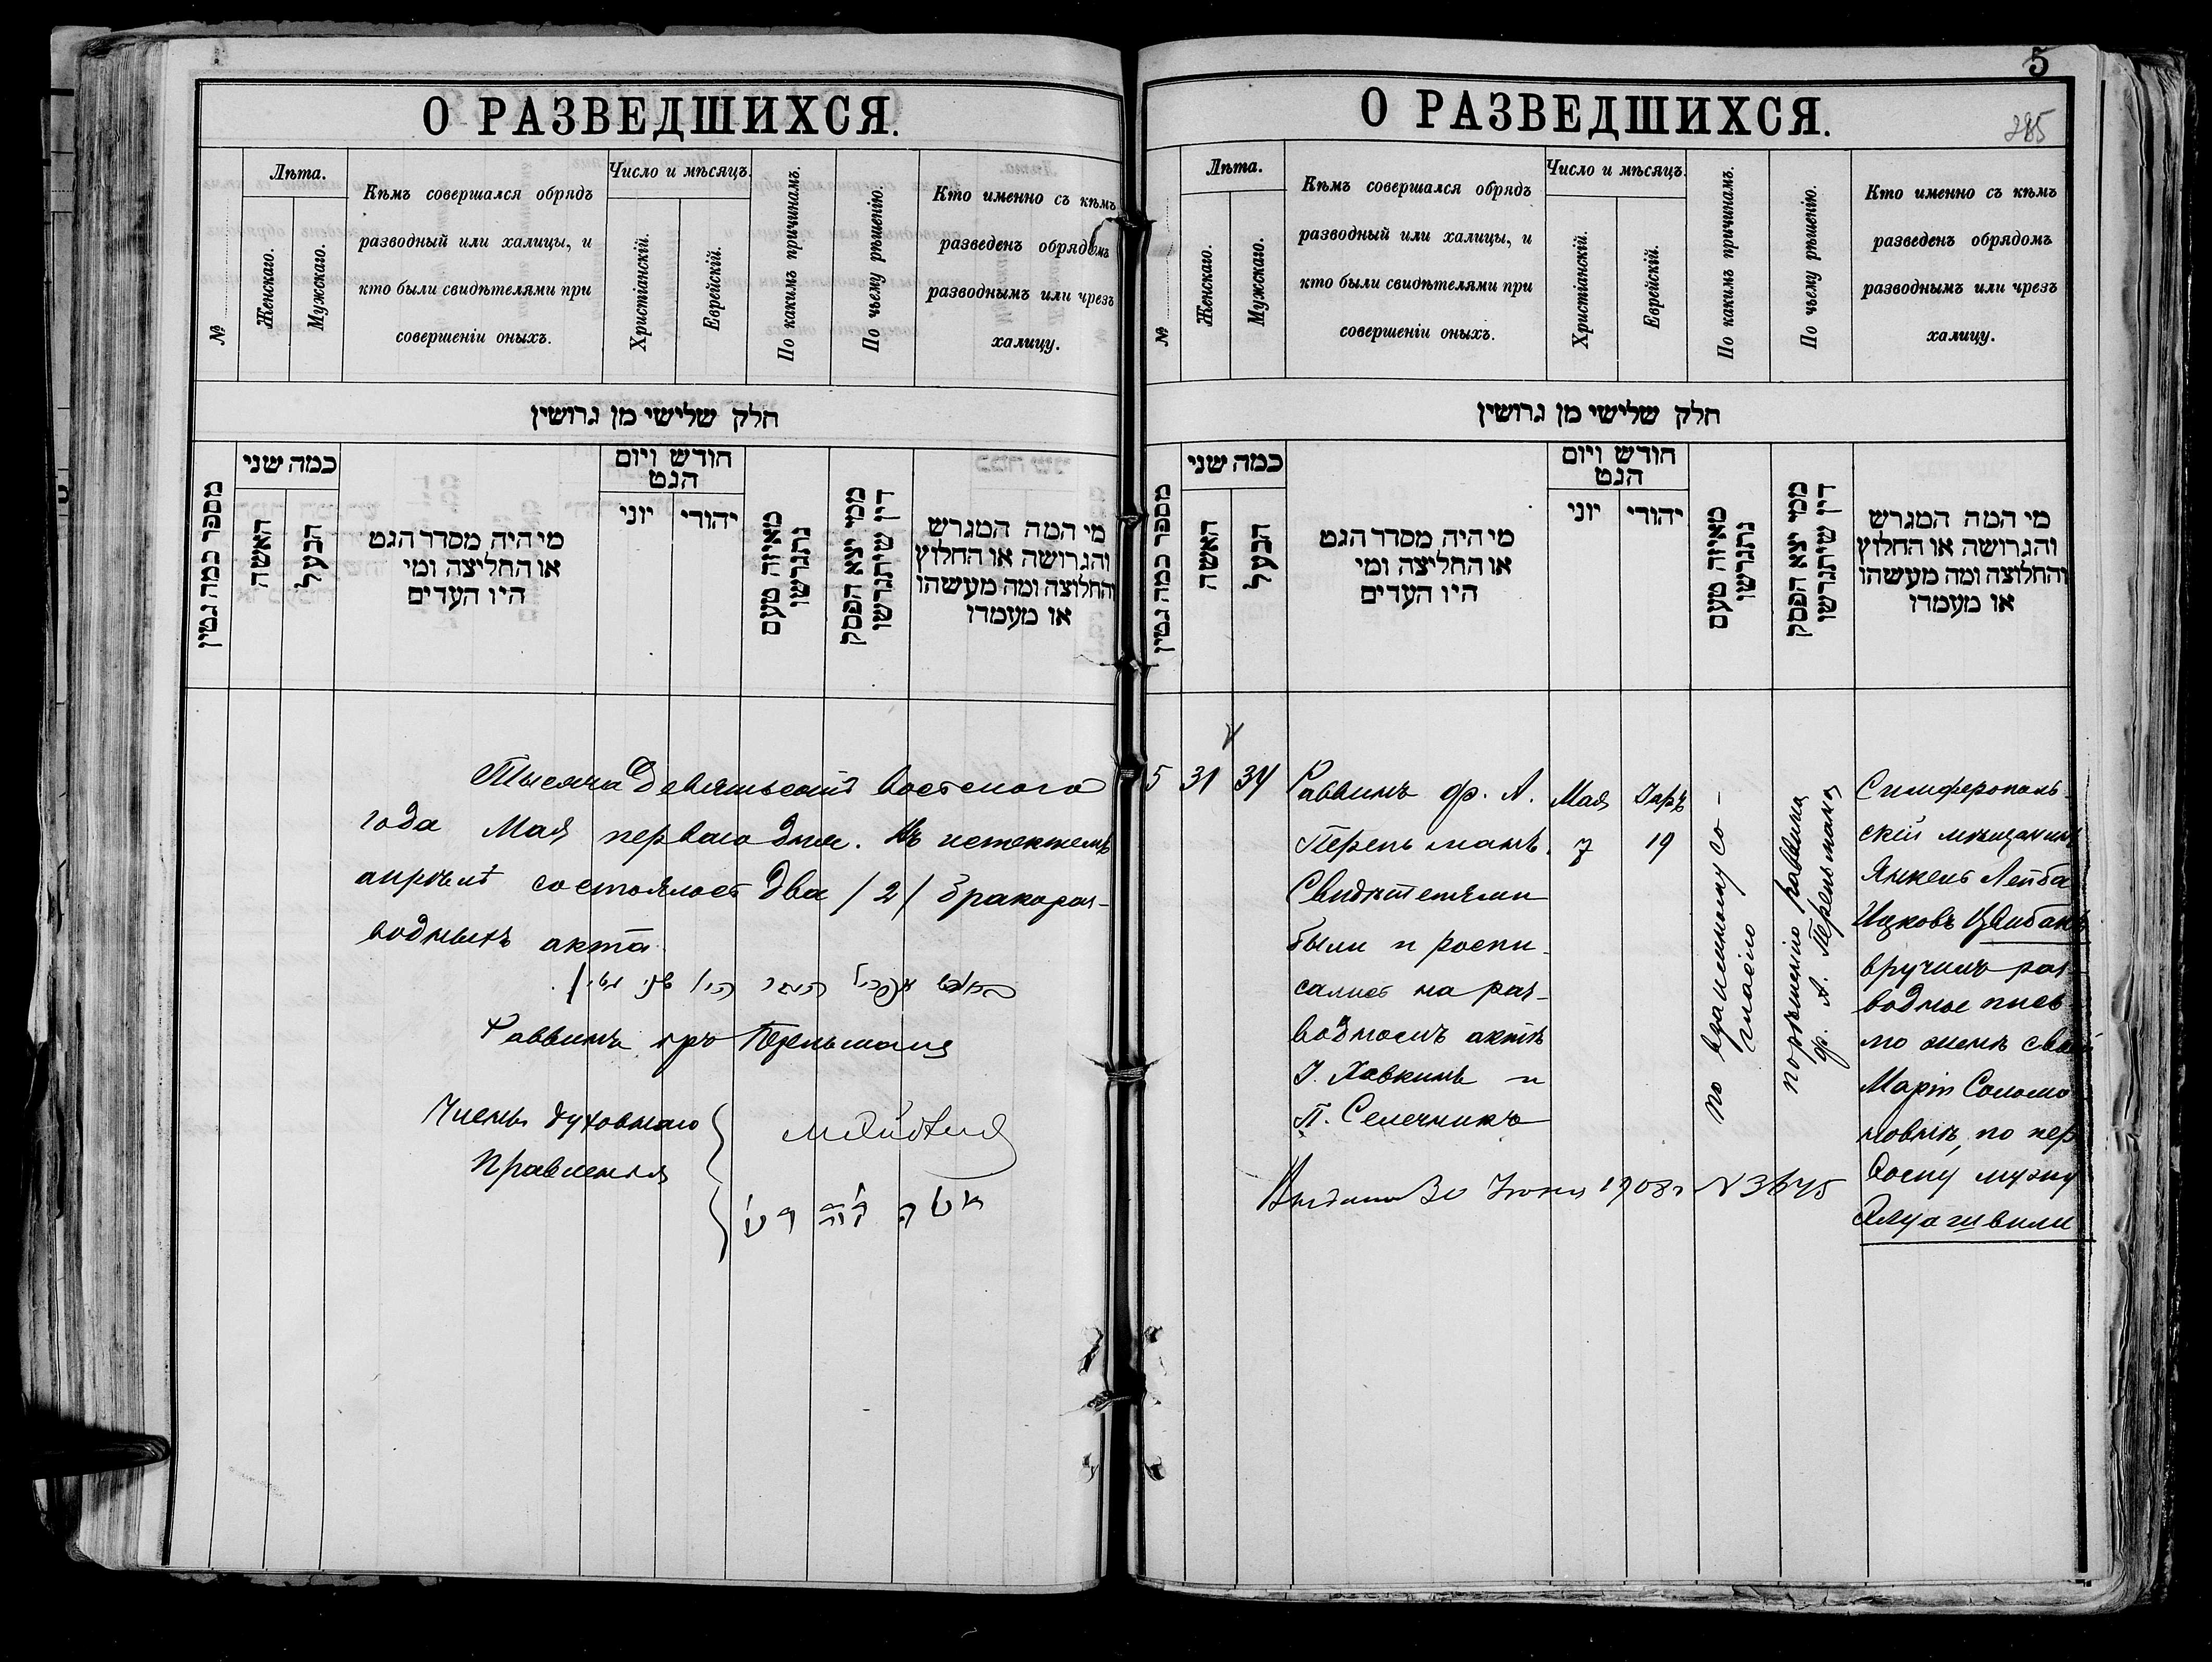 О РАЗВЕДШИХСЯ.
№
Лѣта.
Женскаго.
Мужскаго.
Кѣмъ совершался обрядъ
разводный или халицы, и
кто были свидѣтелями при
совершеніи оныхъ.
Число и мѣсяцъ.
Христіанскій.
Еврейскій.
По какимъ причинамъ.
По чьему рѣшенію.
Кто именно съ кѣмъ
разведенъ обрядомъ
разводнымъ или чрезъ
халицу.
חלק שלישי מן גרושין
מספר כמה גטין
כמה שני
האשה
הבעל
מי היה מסדר הגט
או החליצה ומי
היו העדים
חודש ויום
הגט
יוני
יהודי
מאיזה טעם
נתגרשו
ממי יצא הפסק
דין שיתגרשו
מי המה המגרש
והגרושה או החלוץ
והחלוצה ומה מעשהו
או מעמדו
Тысяча девятьсотъ восьмого
года Мая перваго дня. Въ истекшемъ
апрѣлѣ состоялось два /2/ бракораз-
водныхъ акта
Раввинъ Перельмана
Члены духовнаго
Правленія
5
285
О РАЗВЕДШИХСЯ.
№
Лѣта.
Женскаго.
Мужскаго.
Кѣмъ совершался обрядъ
разводный или халицы, и
кто были свидѣтелями при
совершеніи оныхъ.
Число и мѣсяцъ.
Христіанскій.
Еврейскій.
По какимъ причинамъ.
По чьему рѣшенію.
Кто именно съ кѣмъ
разведенъ обрядомъ
разводнымъ или чрезъ
халицу.
חלק שלישי מן גרושין
מספר כמה גטין
כמה שני
האשה
הבעל
מי היה מסדר הגט
או החליצה ומי
היו העדים
חודש ויום
הגט
יוני
יהודי
מאיזה טעם
נתגרשו
ממי יצא הפסק
דין שיתגרשו
מי המה המגרש
והגרושה או החלוץ
והחלוצה ומה מעשהו
או מעמדו
5 31 34
Раввинъ др. А.
Перельманъ.
Свидѣтелями
были и роспи-
сались на раз-
водномъ актѣ
І. Хавкинъ и
П. Селечникъ
Мая
7
Іяръ
19
по взаимному со-
гласію
по рѣшенію раввина
др. А. Перельмана
Симферополь-
скій мѣщанинъ
Янкель Лейба
Ицковъ Цвибакъ
вручилъ раз-
водное пись-
мо женѣ своей
Маріи Соломо-
новнѣ, по пер-
вому мужу
30 Іюня 1908 г N 3645